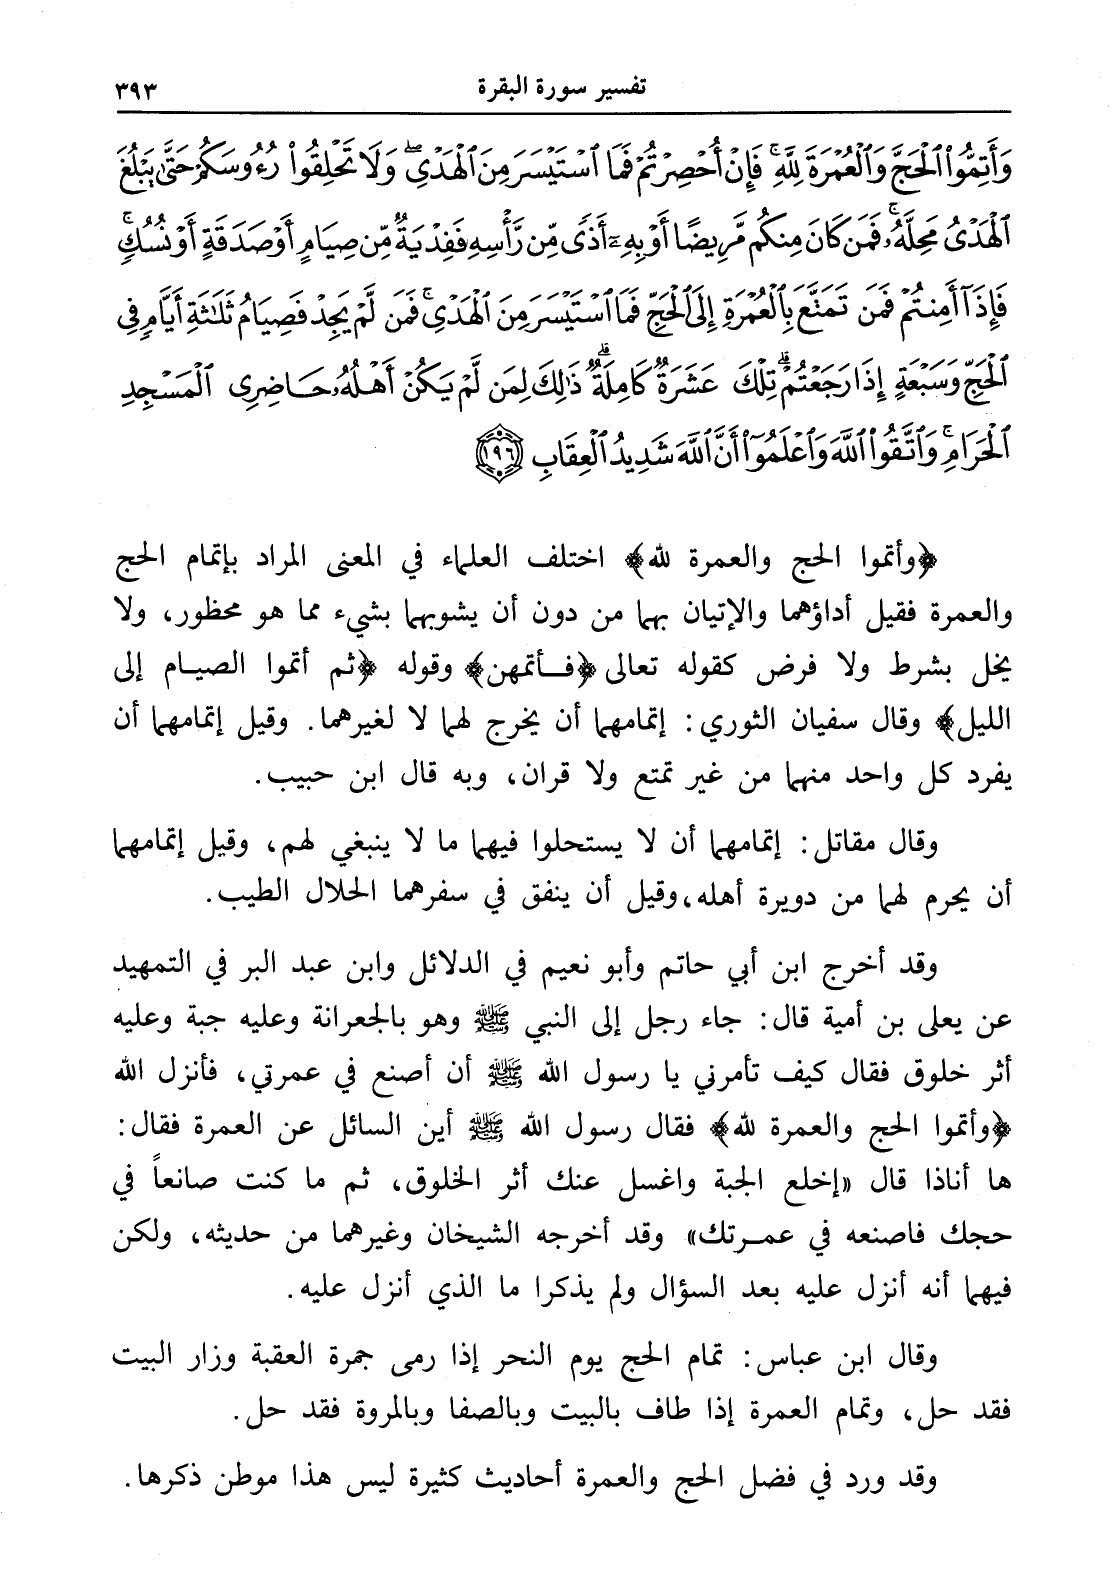 تفسير سورة البقرة ٣٩٣
وَأَتِمُّوا۟ ٱلْحَجَّ وَٱلْعُمْرَةَ لِلَّهِ ۚ فَإِنْ أُحْصِرْتُمْ فَمَا ٱسْتَيْسَرَ مِنَ ٱلْهَدْىِ ۖ وَلَا تَحْلِقُوا۟ رُءُوسَكُمْ حَتَّىٰ يَبْلُغَ
ٱلْهَدْىُ مَحِلَّهُۥ ۚ فَمَن كَانَ مِنكُم مَّرِيضًا أَوْ بِهِۦٓ أَذًى مِّن رَّأْسِهِۦ فَفِدْيَةٌ مِّن صِيَامٍ أَوْ صَدَقَةٍ أَوْ نُسُكٍ ۚ
فَإِذَآ أَمِنتُمْ فَمَن تَمَتَّعَ بِٱلْعُمْرَةِ إِلَى ٱلْحَجِّ فَمَا ٱسْتَيْسَرَ مِنَ ٱلْهَدْىِ ۚ فَمَن لَّمْ يَجِدْ فَصِيَامُ ثَلَٰثَةِ أَيَّامٍ فِى
ٱلْحَجِّ وَسَبْعَةٍ إِذَا رَجَعْتُمْ ۗ تِلْكَ عَشَرَةٌ كَامِلَةٌ ۗ ذَٰلِكَ لِمَن لَّمْ يَكُنْ أَهْلُهُۥ حَاضِرِى ٱلْمَسْجِدِ
ٱلْحَرَامِ ۚ وَٱتَّقُوا۟ ٱللَّهَ وَٱعْلَمُوٓا۟ أَنَّ ٱللَّهَ شَدِيدُ ٱلْعِقَابِ ١٩٦
﴿وأتموا الحج والعمرة لله﴾ اختلف العلماء في المعنى المراد بإتمام الحج
والعمرة فقيل أداؤهما والإتيان بهما من دون أن يشوبهما بشيء مما هو محظور، ولا
يخل بشرط ولا فرض كقوله تعالى ﴿فـأتمهن﴾ وقوله ﴿ثم أتموا الصيـام إلى
الليل﴾ وقال سفيان الثوري: إتمامهما أن يخرج لهما لا لغيرهما. وقيل إتمامهما أن
يفرد كل واحد منهما من غير تمتع ولا قران، وبه قال ابن حبيب.
وقال مقاتل: إتمامهما أن لا يستحلوا فيهما ما لا ينبغي لهم، وقيل إتمامهما
أن يحرم لهما من دويرة أهله، وقيل أن ينفق في سفرهما الحلال الطيب.
وقد أخرج ابن أبي حاتم وأبو نعيم في الدلائل وابن عبد البر في التمهيد
عن يعلى بن أمية قال: جاء رجل إلى النبي ﷺ وهو بالجعرانة وعليه جبة وعليه
أثر خلوق فقال كيف تأمرني يا رسول الله ﷺ أن أصنع في عمرتي، فأنزل الله
﴿وأتموا الحج والعمرة لله﴾ فقال رسول الله ﷺ أين السائل عن العمرة فقال:
ها أناذا قال «إخلع الجبة واغسل عنك أثر الخلوق، ثم ما كنت صانعاً في
حجك فاصنعه في عمـرتك» وقد أخرجه الشيخان وغيرهما من حديثه، ولكن
فيهما أنه أنزل عليه بعد السؤال ولم يذكرا ما الذي أنزل عليه.
وقال ابن عباس: تمام الحج يوم النحر إذا رمى جمرة العقبة وزار البيت
فقد حل، وتمام العمرة إذا طاف بالبيت وبالصفا وبالمروة فقد حل.
وقد ورد في فضل الحج والعمرة أحاديث كثيرة ليس هذا موطن ذكرها.